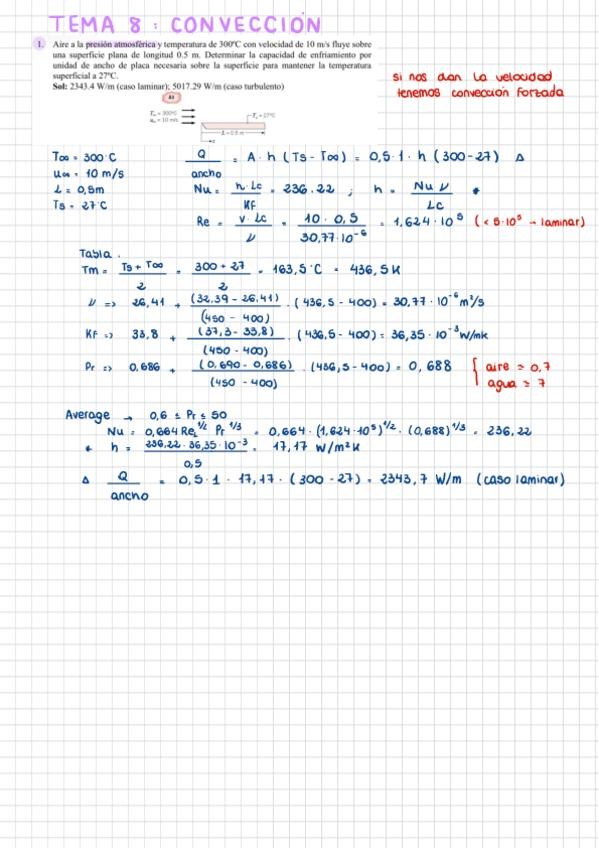 TEMA 8: CONVECCIÓN
1. Aire a la presión atmosférica y temperatura de 300ºC con velocidad de 10 m/s fluye sobre
una superficie plana de longitud 0.5 m. Determinar la capacidad de enfriamiento por
unidad de ancho de placa necesaria sobre la superficie para mantener la temperatura
superficial a 27ºC.
Sol: 2343.4 W/m (caso laminar); 5017.29 W/m (caso turbulento)
si nos dan la velocidad
tenemos convección forzada
T∞ = 300ºC
u∞ = 10 m/s
Ts = 27ºC
L = 0.5 m
T∞ = 300ºC
u∞ = 10 m/s
L = 0,5m
Ts = 27ºC
Q/ancho = A · h (Ts - T∞) = 0,5 · 1 · h (300 - 27) Δ
Nu = h · Lc / Kf = 236.22 ; h = Nu ν / Lc *
Re = v · Lc / ν = 10 · 0,5 / 30,77 · 10⁻⁶ = 1,624 · 10⁵ (< 5·10⁵ → laminar)
Tabla.
Tm = Ts + T∞ / 2 = 300 + 27 / 2 = 163,5ºC = 436,5 K
ν => 26,41 + (32,39 - 26,41) / (450 - 400) · (436,5 - 400) = 30,77 · 10⁻⁶ m²/s
Kf => 33,8 + (37,3 - 33,8) / (450 - 400) · (436,5 - 400) = 36,35 · 10⁻³ W/mk
Pr => 0,686 + (0,690 - 0,686) / (450 - 400) · (436,5 - 400) = 0,688 { aire ≃ 0,7
agua ≃ 7
Average → 0,6 ≤ Pr ≤ 50
Nu = 0,664 ReL^1/2 Pr^1/3 = 0,664 · (1,624 · 10⁵)^1/2 · (0,688)^1/3 = 236,22
* h = 236,22 · 36,35 · 10⁻³ / 0,5 = 17,17 W/m²K
Δ Q/ancho = 0,5 · 1 · 17,17 · (300 - 27) = 2343,7 W/m (caso laminar)